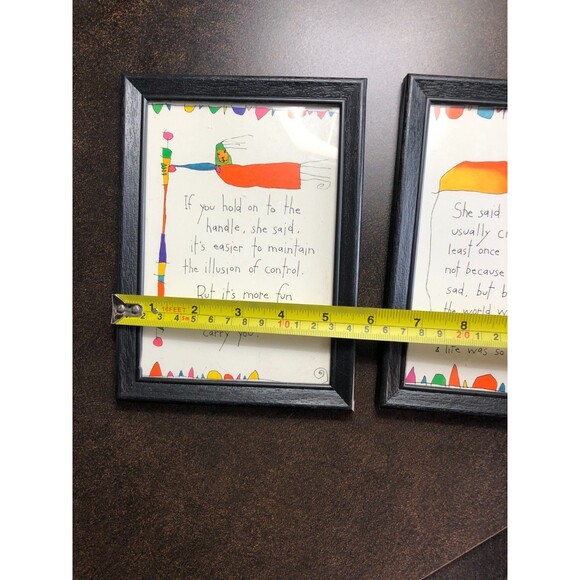 If you hold on to the
handle, she said,
it's easier to maintain
the illusion of control.
But it's more fun
carry you.
She said
usually c
least once
not because
sad, but b
the world w
& life was so
1 2 3 4 5 6 7 8
16FEET
3 4 5 6 7 8 9 10 1 2 3 4 5 6 7 8 9 20 1